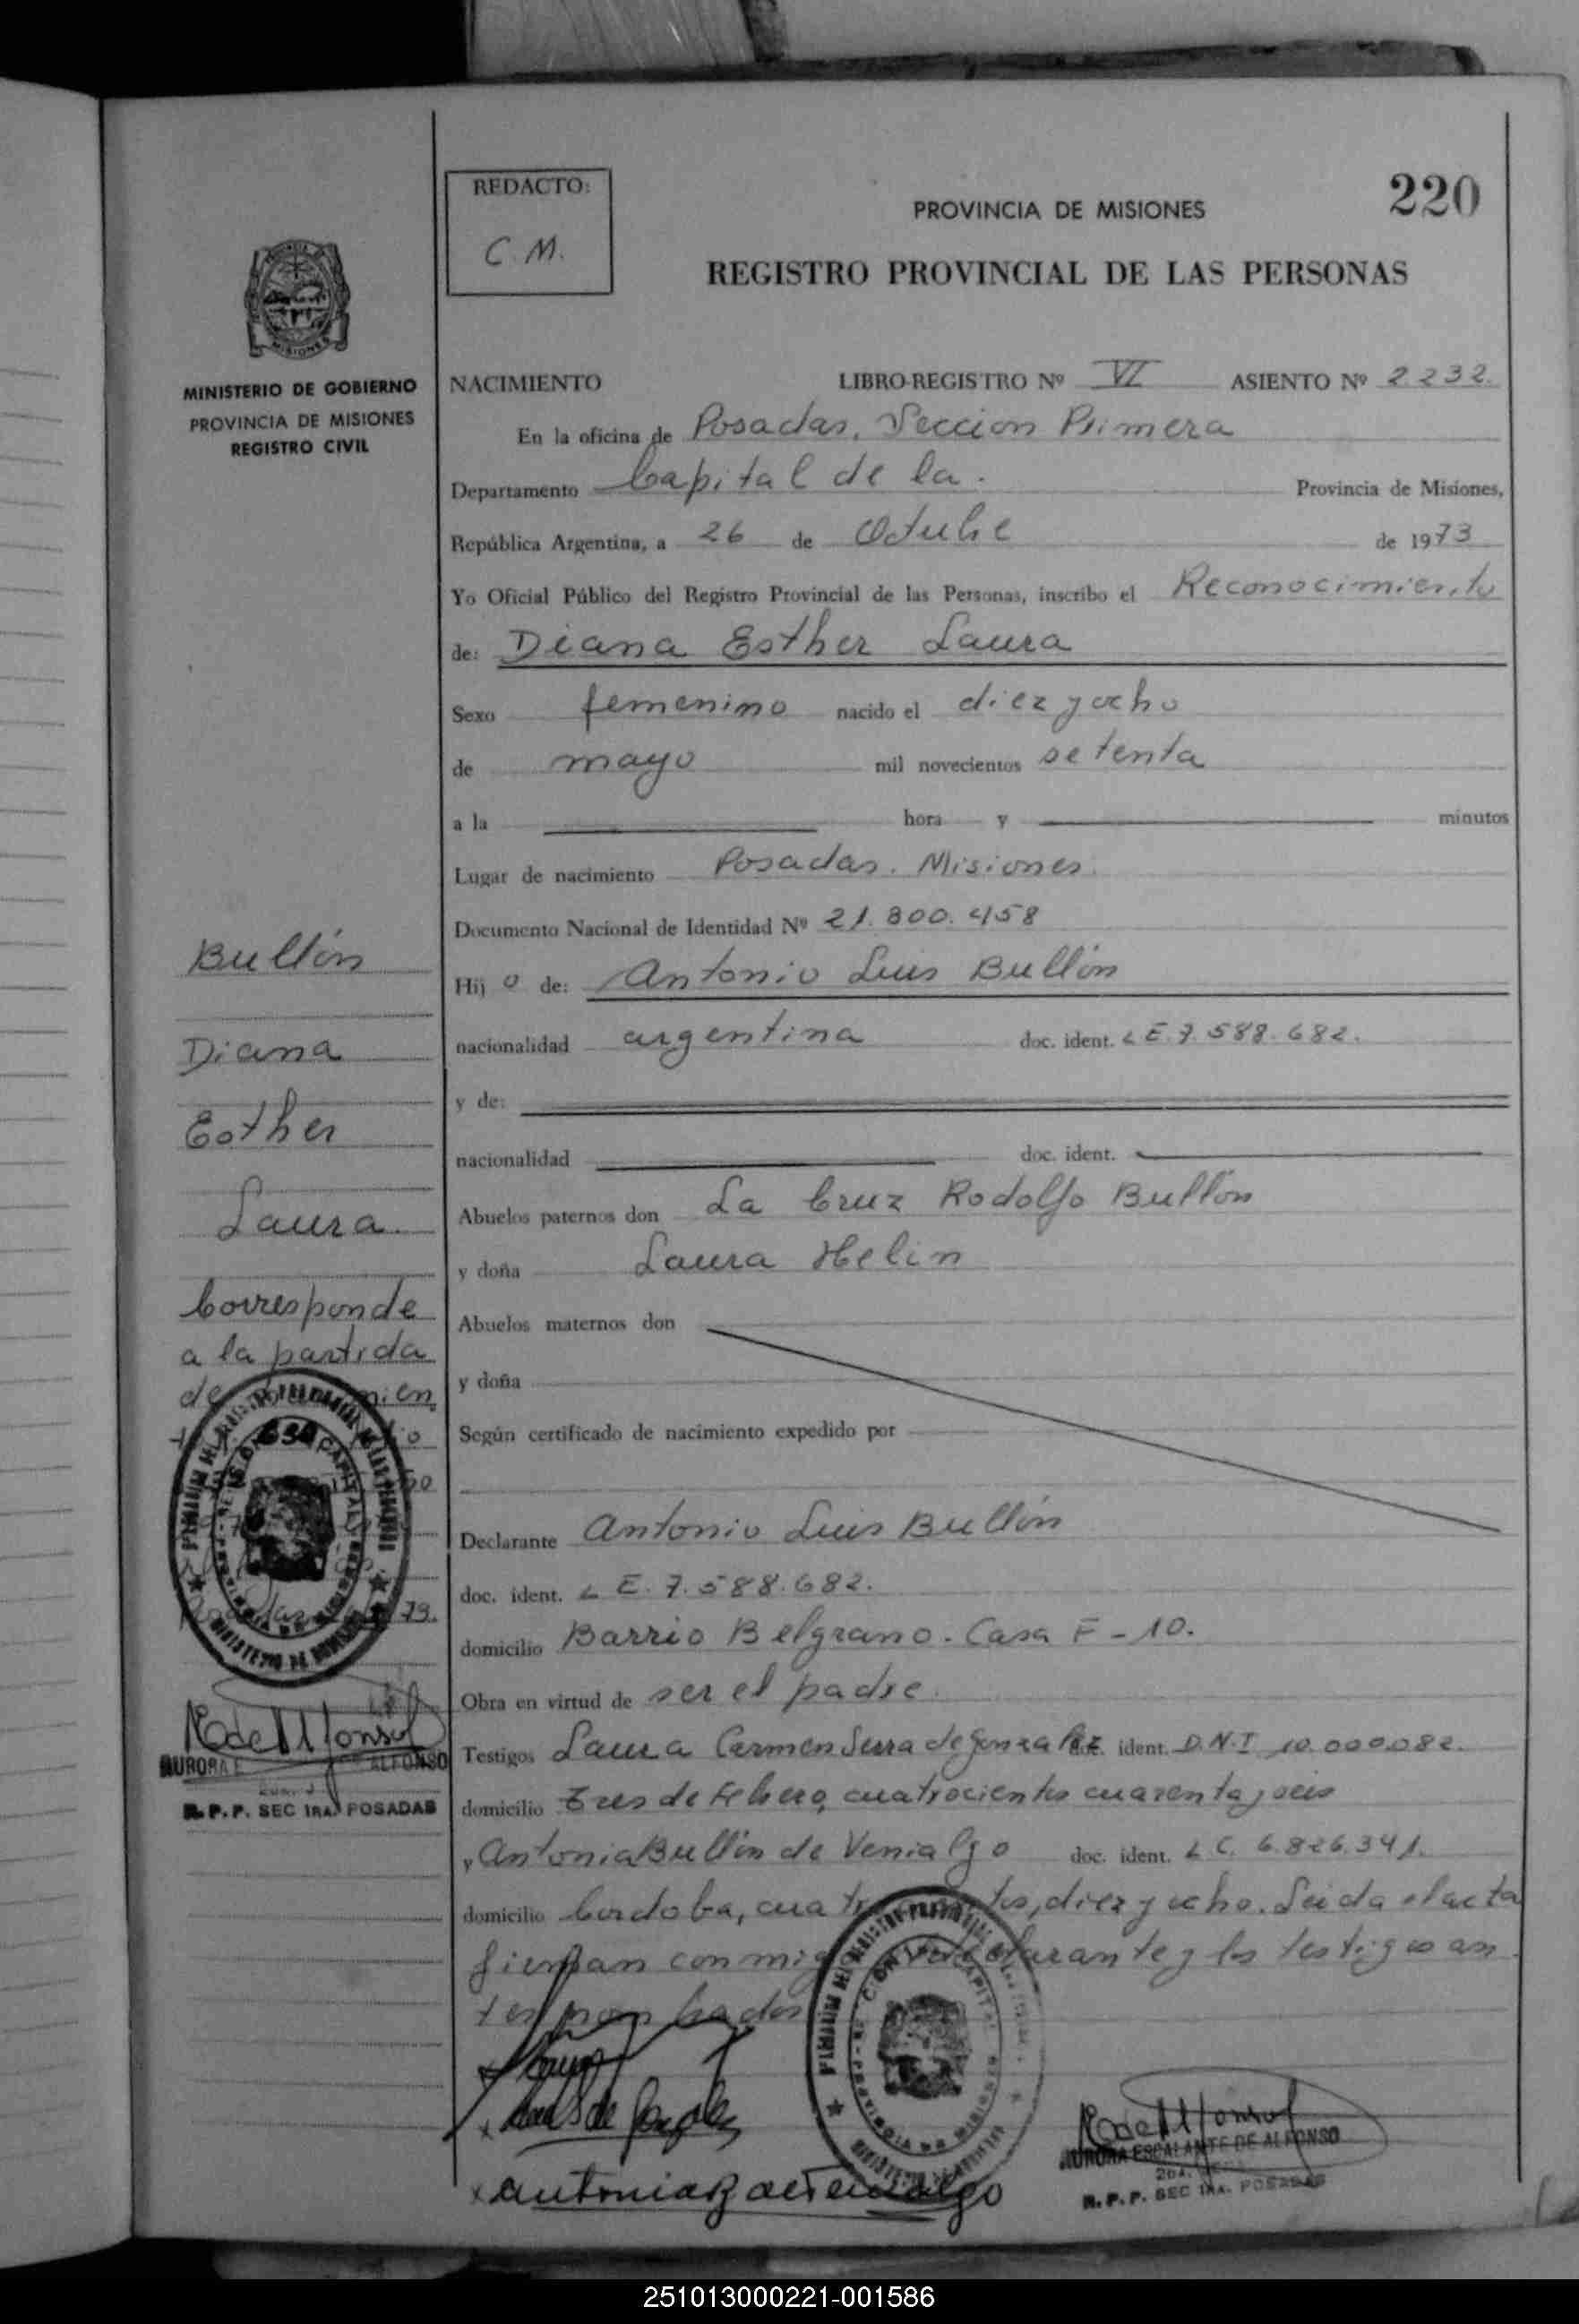 220
REDACTO:
C. M.
PROVINCIA DE MISIONES
REGISTRO PROVINCIAL DE LAS PERSONAS
MISIONES
MINISTERIO DE GOBIERNO
PROVINCIA DE MISIONES
REGISTRO CIVIL
NACIMIENTO LIBRO-REGISTRO Nº VI ASIENTO Nº 2232.
En la oficina de Posadas, Seccion Primera
Departamento Capital de la. Provincia de Misiones,
República Argentina, a 26 de Octubre de 1973
Yo Oficial Público del Registro Provincial de las Personas, inscribo el Reconocimiento
de: Diana Esther Laura
Sexo femenino nacido el diez y ocho
de mayo mil novecientos setenta
a la hora y minutos
Lugar de nacimiento Posadas. Misiones.
Documento Nacional de Identidad Nº 21.800.458
Hij o de: Antonio Luis Bullón
nacionalidad argentina doc. ident. L E. 7.588.682.
y de:
nacionalidad doc. ident.
Abuelos paternos don La Cruz Rodolfo Bullón
y doña Laura Helin
Abuelos maternos don
y doña
Según certificado de nacimiento expedido por
Declarante Antonio Luis Bullón
doc. ident. L E. 7.588.682.
domicilio Barrio Belgrano. Casa F - 10.
Obra en virtud de ser el padre.
Testigos Laura Carmen Serra de Gonzalez doc. ident. D.N.I 10.000.082.
domicilio Tres de Febrero, cuatrocientos cuarenta y seis
y Antonia Bullón de Venialgo doc. ident. L C. 6.826.341.
domicilio Cordoba, diez y ocho. Leida el acta
firman conmigo declarante y los testigos an
tes nombados
Bullón
Diana
Esther
Laura.
Corresponde
a la partida
de
73.
AURORA E ALFONSO
R.P.P. SEC 1RA. POSADAS
AURORA ESCALANTE DE ALFONSO
R.P.P. SEC 1RA. POSADAS
251013000221-001586